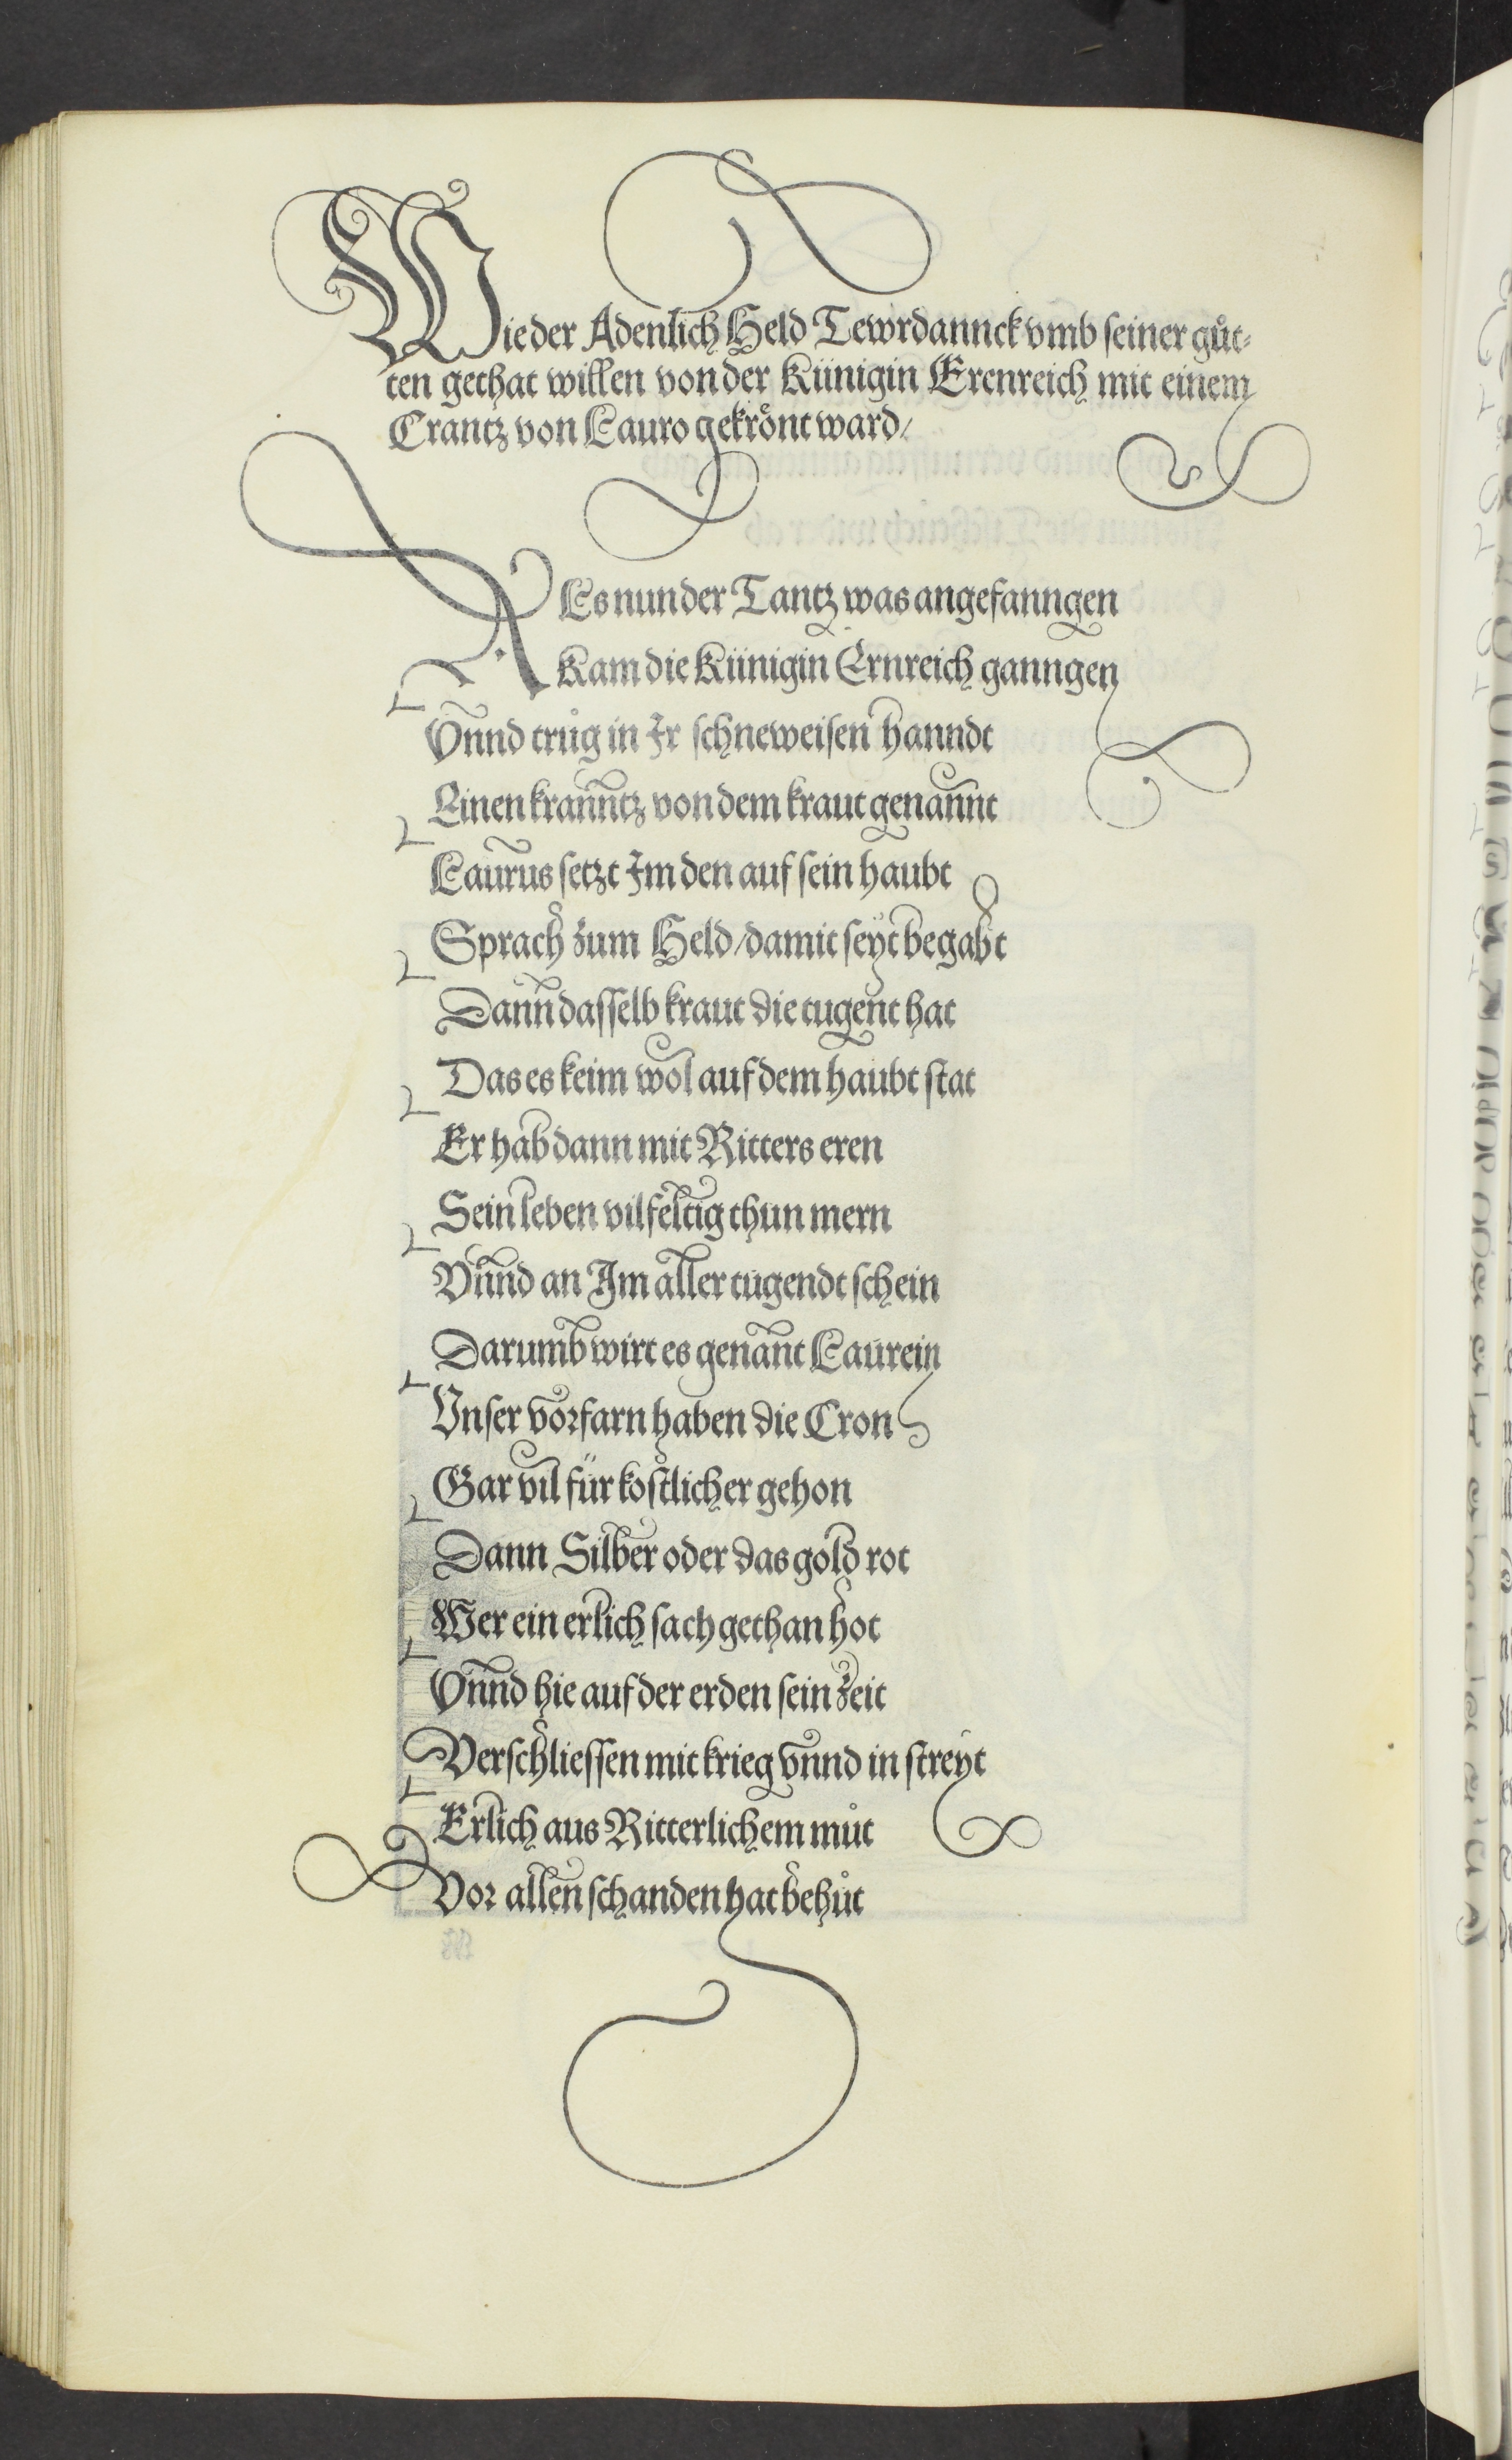 Wie der Adenlich Held Tewrdannck vmb seiner gůt-
ten gethat willen von der Künigin Erenreich mit einem
Crantz von Lauro gekrönt ward/
ALs nun der Tantz was angefanngen
Kam die Künigin Ernreich ganngen
Vnnd trůg in Ir schneweisen hanndt
Einen kranntz von dem kraut genannt
Laurus setzt Im den auf sein haubt
Sprach zum Held/damit seyt begabt
Dann dasselb kraut die tugent hat
Das es keim wol auf dem haubt stat
Er hab dann mit Ritters eren
Sein leben vilfeltig thun mern
Vnnd an Im aller tugendt schein
Darumb wirt es genant Laurein
Vnser vorfarn haben die Cron
Gar vil für kostlicher gehon
Dann Silber oder das gold rot
Wer ein erlich sach gethan hot
Vnnd hie auf der erden sein zeit
Verschliessen mit krieg vnnd in streyt
Erlich aus Ritterlichem můt
Vor allen schanden hat behůt